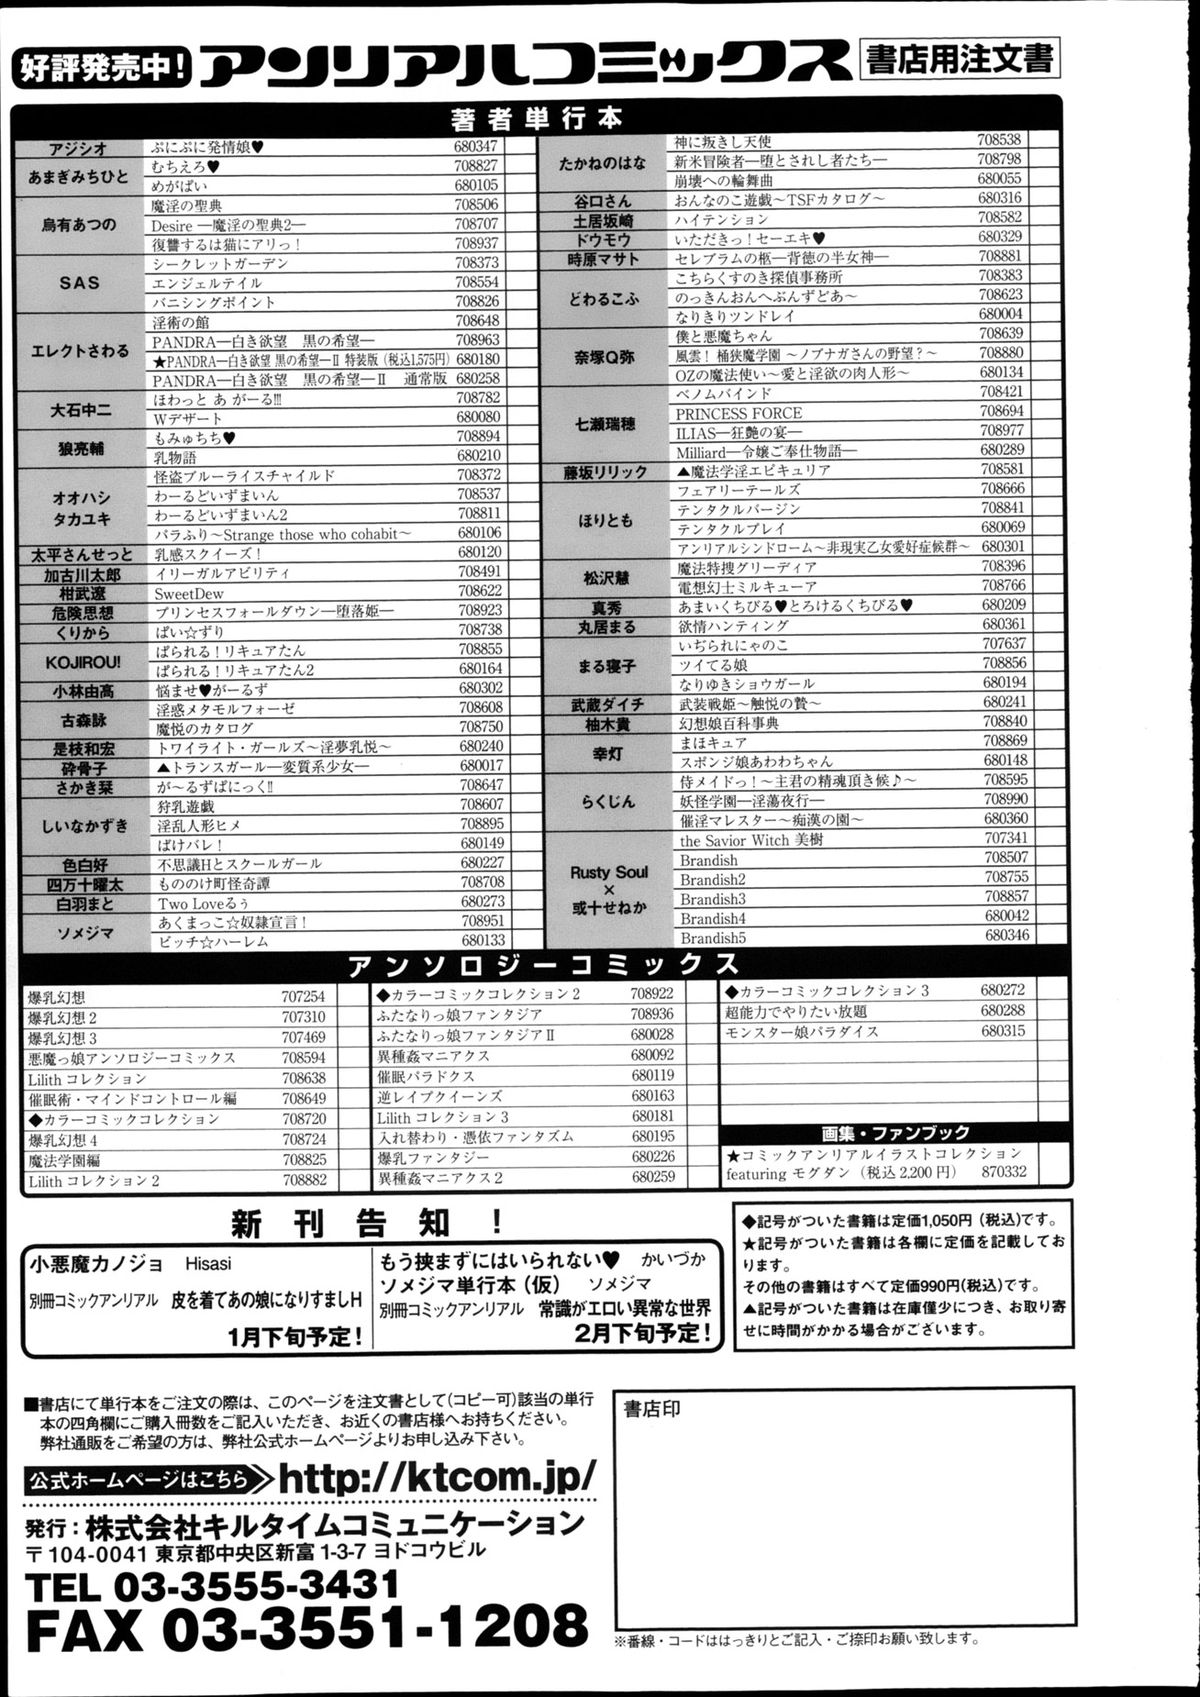 好評発売中! アンリアルコミックス 書店用注文書
著者単行本
アジシオ ぷにぷに発情娘♥ 680347
あまぎみちひと むちえろ♥ 708827
めがぱい 680105
烏有あつの 魔淫の聖典 708506
Desire ―魔淫の聖典2― 708707
復讐するは猫にアリっ! 708937
SAS シークレットガーデン 708373
エンジェルテイル 708554
バニシングポイント 708826
エレクトさわる 淫術の館 708648
PANDRA―白き欲望 黒の希望― 708963
★PANDRA―白き欲望 黒の希望―Ⅱ 特装版(税込1,575円) 680180
PANDRA―白き欲望 黒の希望―Ⅱ 通常版 680258
大石中二 ほわっと あ がーる!!! 708782
Wデザート 680080
狼亮輔 もみゅちち♥ 708894
乳物語 680210
オオハシタカユキ 怪盗ブルーライスチャイルド 708372
わーるどいずまいん 708537
わーるどいずまいん2 708811
パラふり～Strange those who cohabit～ 680106
太平さんせっと 乳感スクイーズ! 680120
加古川太郎 イリーガルアビリティ 708491
柑武遼 SweetDew 708622
危険思想 プリンセスフォールダウン―堕落姫― 708923
くりから ぱい☆ずり 708738
KOJIROU! ぱられる!リキュアたん 708855
ぱられる!リキュアたん2 680164
小林由高 悩ませ♥がーるず 680302
古森詠 淫惑メタモルフォーゼ 708608
魔悦のカタログ 708750
是枝和宏 トワイライト・ガールズ～淫夢乳悦～ 680240
砕骨子 ▲トランスガール―変質系少女― 680017
さかき栞 が～るずぱにっく!! 708647
しいなかずき 狩乳遊戯 708607
淫乱人形ヒメ 708895
ばけバレ! 680149
色白好 不思議Hとスクールガール 680227
四万十曜太 もののけ町怪奇譚 708708
白羽まと Two Loveるぅ 680273
ソメジマ あくまっこ☆奴隷宣言! 708951
ビッチ☆ハーレム 680133
たかねのはな 神に叛きし天使 708538
新米冒険者―堕とされし者たち― 708798
崩壊への輪舞曲 680055
谷口さん おんなのこ遊戯～TSFカタログ～ 680316
土居坂崎 ハイテンション 708582
ドウモウ いただきっ!セーエキ♥ 680329
時原マサト セレブラムの柩―背徳の半女神― 708881
どわるこふ こちらくすのき探偵事務所 708383
のっきんおんへぶんずどあ～ 708623
なりきりツンドレイ 680004
奈塚Q弥 僕と悪魔ちゃん 708639
風雲! 桶狭魔学園 ～ノブナガさんの野望?～ 708880
OZの魔法使い～愛と淫欲の肉人形～ 680134
七瀬瑞穂 ベノムバインド 708421
PRINCESS FORCE 708694
ILIAS―狂艶の宴― 708977
Milliard―令嬢ご奉仕物語― 680289
藤坂リリック ▲魔法学淫エピキュリア 708581
ほりとも フェアリーテールズ 708666
テンタクルバージン 708841
テンタクルプレイ 680069
アンリアルシンドローム～非現実乙女愛好症候群～ 680301
松沢慧 魔法特捜グリーディア 708396
電想幻士ミルキューア 708766
真秀 あまいくちびる♥とろけるくちびる♥ 680209
丸居まる 欲情ハンティング 680361
まる寝子 いぢられにゃのこ 707637
ツイてる娘 708856
なりゆきショウガール 680194
武蔵ダイチ 武装戦姫～触悦の贄～ 680241
柚木貴 幻想娘百科事典 708840
幸灯 まほキュア 708869
スポンジ娘あわわちゃん 680148
らくじん 侍メイドっ!～主君の精魂頂き候♪～ 708595
妖怪学園―淫蕩夜行― 708990
催淫マレスター～痴漢の園～ 680360
Rusty Soul×或十せねか the Savior Witch 美樹 707341
Brandish 708507
Brandish2 708755
Brandish3 708857
Brandish4 680042
Brandish5 680346
アンソロジーコミックス
爆乳幻想 707254
爆乳幻想 2 707310
爆乳幻想 3 707469
悪魔っ娘アンソロジーコミックス 708594
Lilith コレクション 708638
催眠術・マインドコントロール編 708649
◆カラーコミックコレクション 708720
爆乳幻想 4 708724
魔法学園編 708825
Lilith コレクション 2 708882
◆カラーコミックコレクション 2 708922
ふたなりっ娘ファンタジア 708936
ふたなりっ娘ファンタジアⅡ 680028
異種姦マニアクス 680092
催眠パラドクス 680119
逆レイプクイーンズ 680163
Lilith コレクション 3 680181
入れ替わり・憑依ファンタズム 680195
爆乳ファンタジー 680226
異種姦マニアクス 2 680259
◆カラーコミックコレクション 3 680272
超能力でやりたい放題 680288
モンスター娘パラダイス 680315
画集・ファンブック
★コミックアンリアルイラストコレクション
featuring モグダン (税込2,200円) 870332
新刊告知!
小悪魔カノジョ Hisasi
別冊コミックアンリアル 皮を着てあの娘になりすましH
1月下旬予定!
もう挟まずにはいられない♥ かいづか
ソメジマ単行本(仮) ソメジマ
別冊コミックアンリアル 常識がエロい異常な世界
2月下旬予定!
◆記号がついた書籍は定価1,050円(税込)です。
★記号がついた書籍は各欄に定価を記載してお
ります。
その他の書籍はすべて定価990円(税込)です。
▲記号がついた書籍は在庫僅少につき、お取り寄
せに時間がかかる場合がございます。
■書店にて単行本をご注文の際は、このページを注文書として(コピー可)該当の単行
本の四角欄にご購入冊数をご記入いただき、お近くの書店様へお持ちください。
弊社通販をご希望の方は、弊社公式ホームページよりお申し込み下さい。
公式ホームページはこちら http://ktcom.jp/
発行:株式会社キルタイムコミュニケーション
〒104-0041 東京都中央区新富1-3-7 ヨドコウビル
TEL 03-3555-3431
FAX 03-3551-1208
書店印
※番線・コードははっきりとご記入・ご捺印お願い致します。